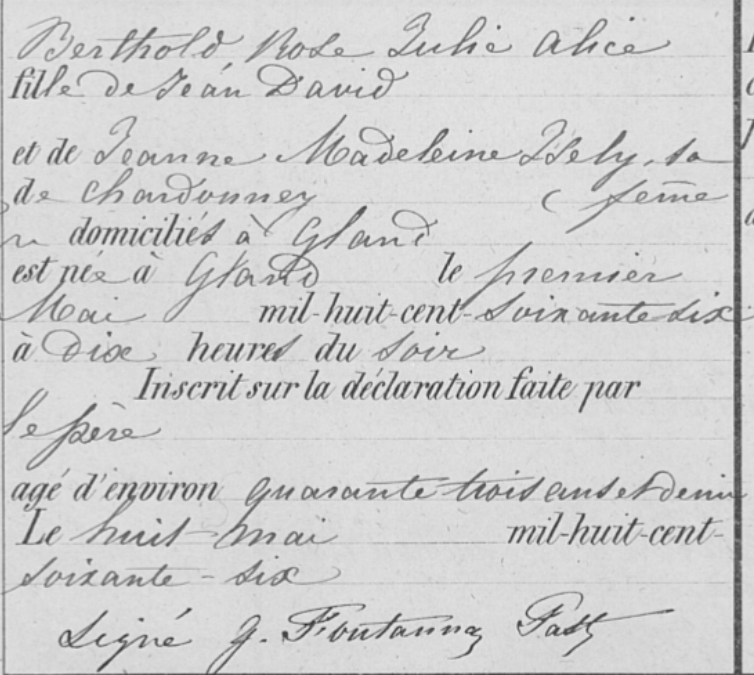 Berthold Rose Julie Alice
fille de Jean David
et de Jeanne Madeleine Isely, sa
de Chardonney ( feme
domiciliés à Gland
est née à Gland le premier
Mai mil-huit-cent-soixante six
à dix heures du soir
Inscrit sur la déclaration faite par
le père
agé d'environ quarante trois ans et demi
Le huit mai mil-huit-cent-
soixante-six
Signé J. Fontannaz Past